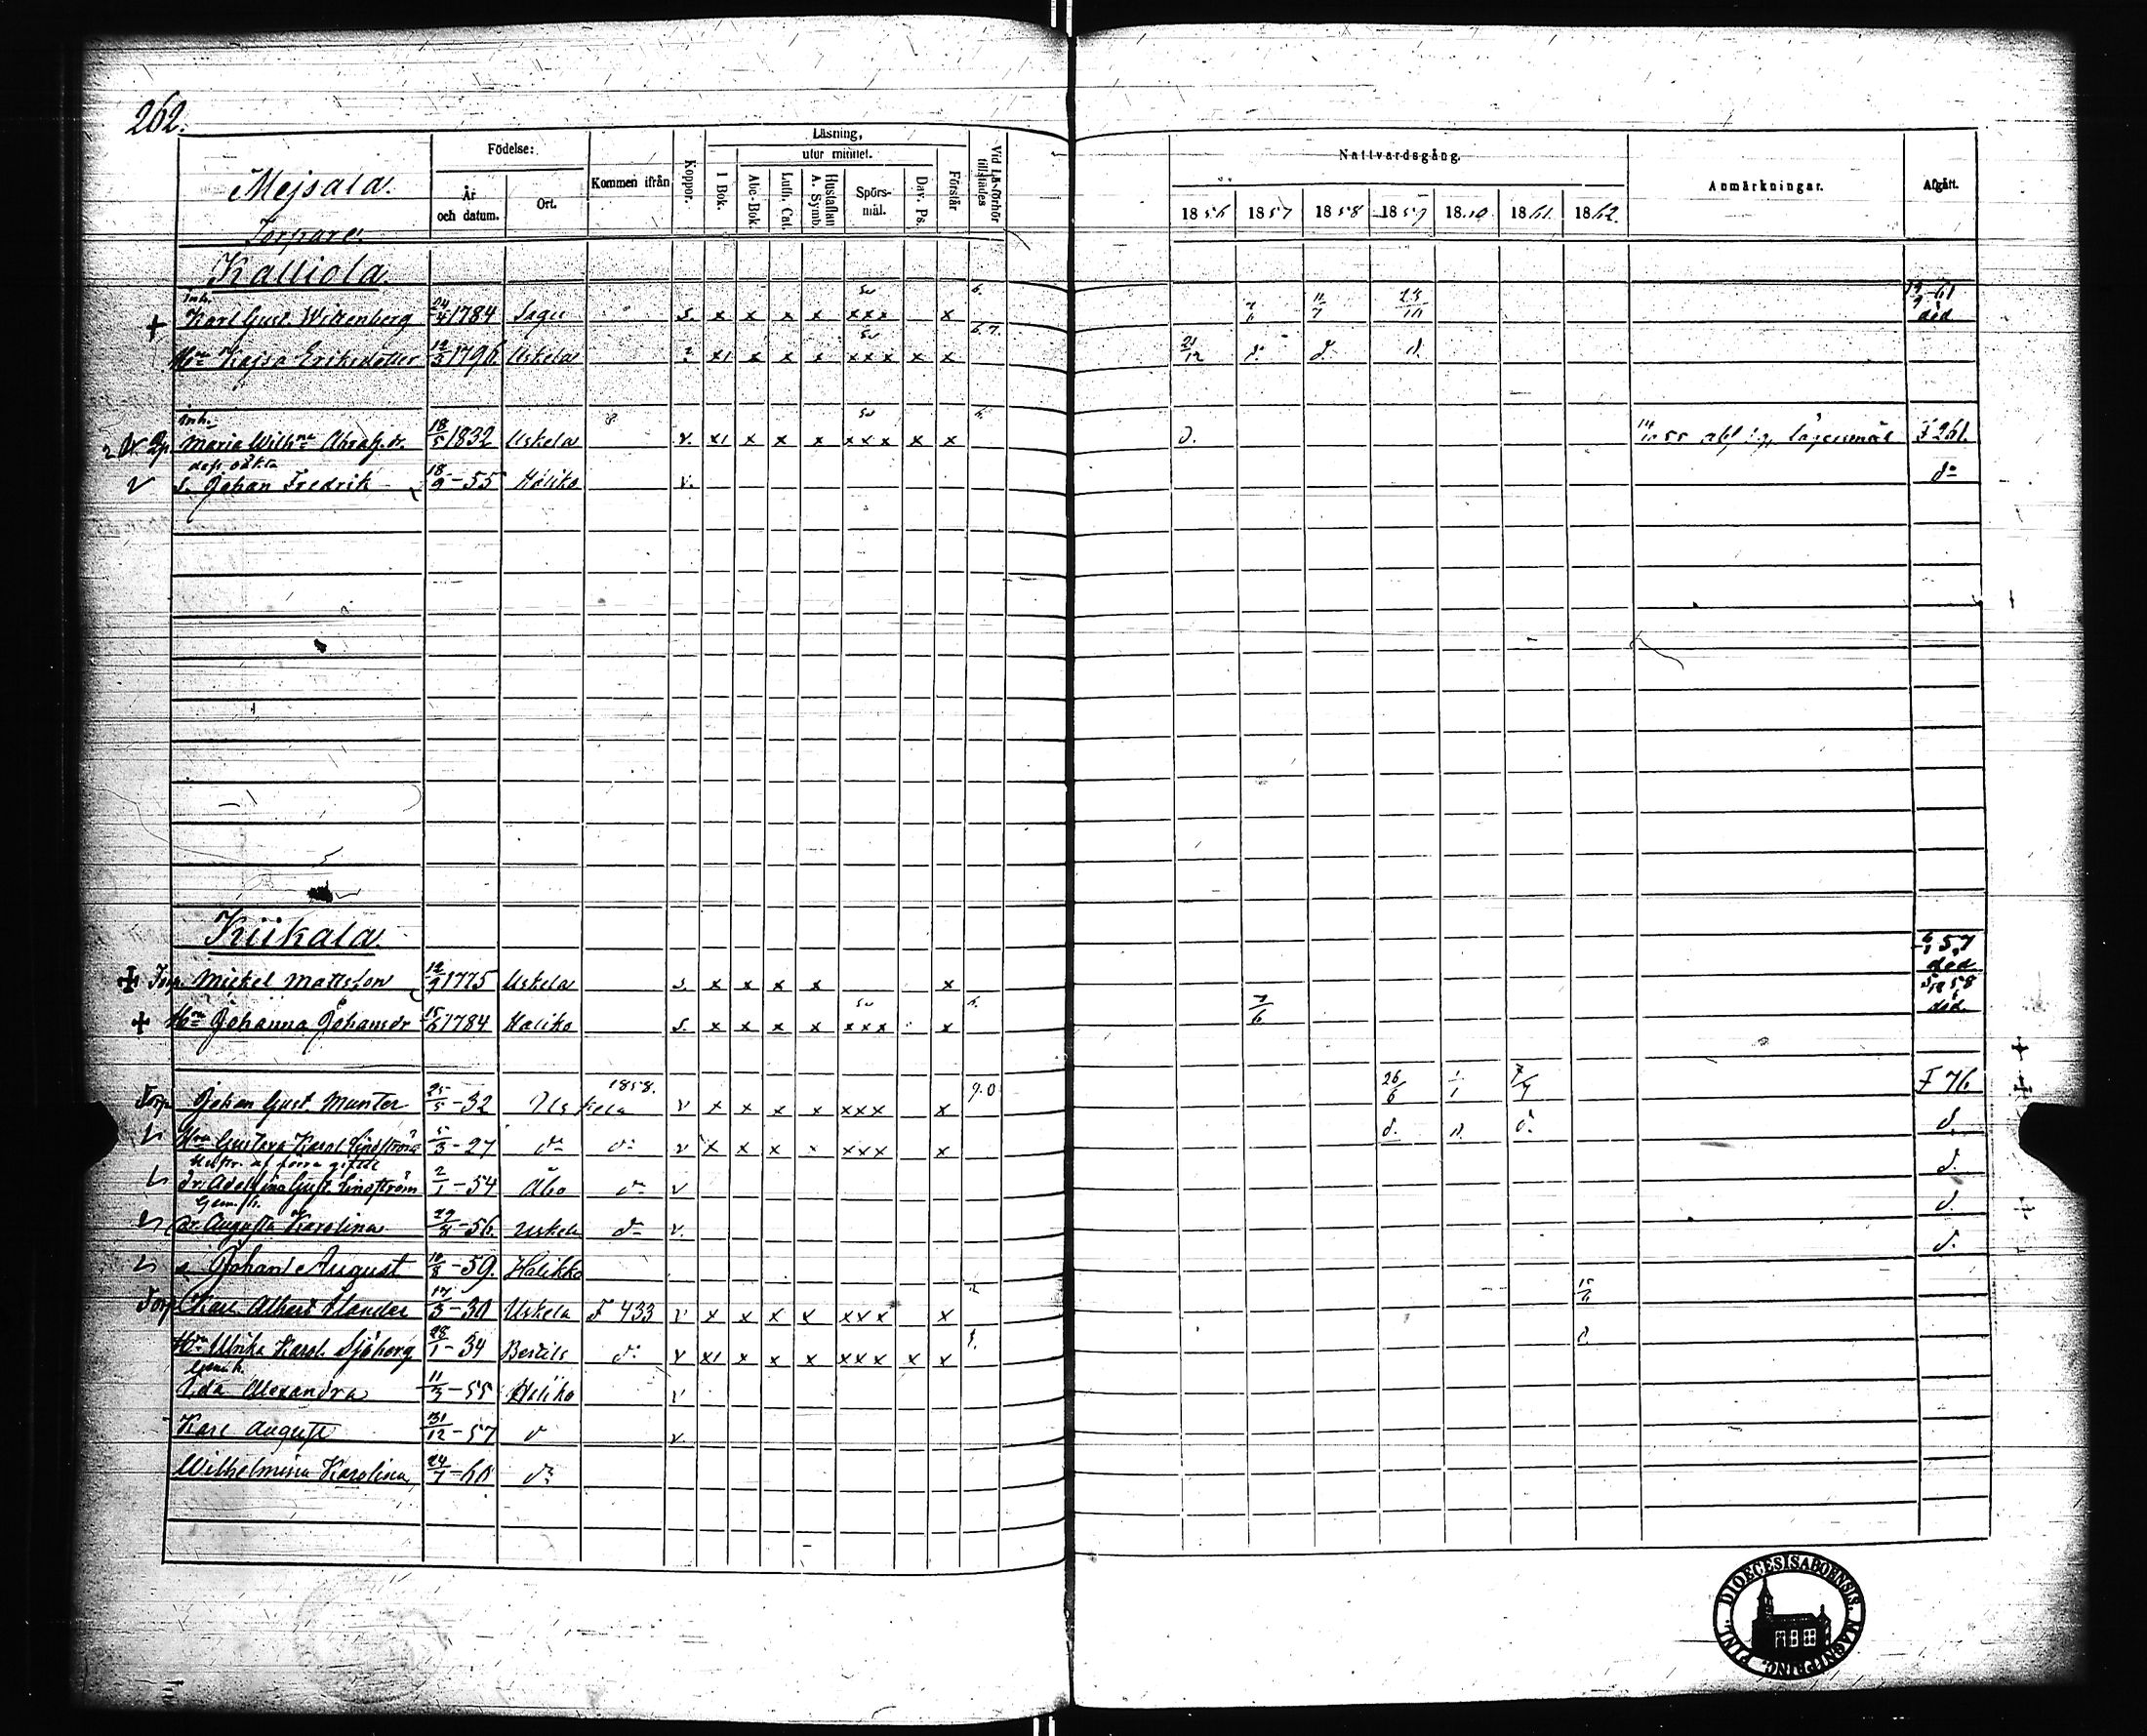 262.
Mejsala.
Torpare.
Födelse:
År och datum.
Ort.
Kommen ifrån
Koppor.
Läsning,
utur minnet.
I Bok.
Abc-Bok.
Luth. Cat.
Hustaflan A. Symb.
Spörs-mål.
Dav. Ps.
Förstår
Vid Läsförhör tillstädes
Nattvardsgång.
1856 1857 1858 1859 1860 1861 1862
Anmärkningar.
Afgått.
Kalliola.
Inh.
+ Karl Gust. Wittenberg 24/4 1784 Sagu s. x x x x xxx x 7/6 11/7 23/10 61 död
Hru Kajsa Eriksdotter 12/3 1796 Uskela x1 x x x xxx x x 21/12 d:o d:o d.
Inh.
Maria Wilhna Abrah.dr. 18/5 1832 Uskela v. x1 x x x xxx x x d. 55 lägersmål F 261.
dess oäkta
s. Johan Fredrik 18/9 - 55 Haliko v. do
Kiikala
+ Torp. Mickel Mattsson 12/9 1775 Uskela s. x x x x x 57 död
+ Hru Johanna Johansdr 15/6 1784 Haliko s. x x x x xxx x 7/6 58 död
Torp. Johan Gust. Munter 25/5 - 32 Uskela 1858. v x x x x xxx x 9.0 26/6 1/1 7/4 F 76
Hru Gustava Karol. Lindström 5/3 - 27 do do v x x x x xxx x d. d. d. d.
af förra giftet
dr. Adelina Gust. Lindström 2/1 - 54 Åbo do v d.
Gem. h.
dr. Augusta Karolina 29/8 - 56. Uskela do v. d.
s. Johan August 10/8 - 59. Halikko d.
Torp. Karl Albert Flander 17/3 - 30 Uskela F 433 v x x x x xxx x 15/6
Hru Ulrika Karol. Sjöberg 28/1 - 34 Bertils do v x1 x x x xxx x x d.
Gem. h.
Ida Alexandra 11/3 - 55 Haliko v
Karl August 31/12 - 57 d v.
Wilhelmina Karolina 24/7 - 60 do
DIOECESIS ABOENSIS. MAGNI PRINC. FINL.